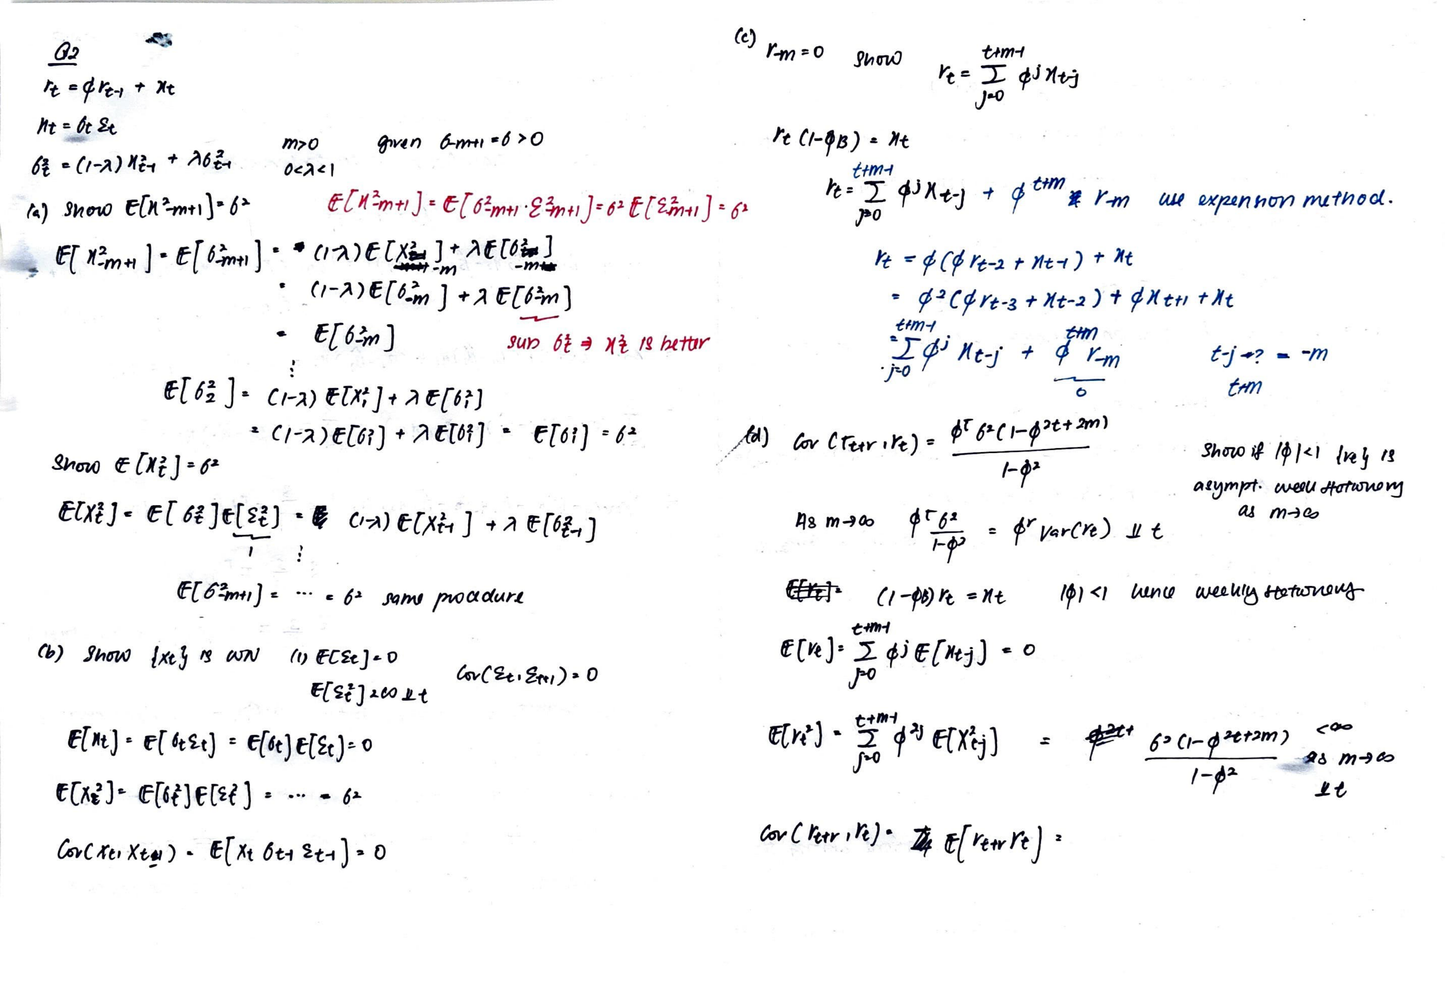 Q2
r_t = φ r_{t-1} + x_t
x_t = σ_t ε_t
σ_t^2 = (1-λ) x_{t-1}^2 + λ σ_{t-1}^2
m>0 given σ_{-m+1} = σ > 0
0<λ<1
(a) show E[x_{-m+1}^2] = σ^2
E[x_{-m+1}^2] = E[σ_{-m+1}^2 · ε_{-m+1}^2] = σ^2 E[ε_{-m+1}^2] = σ^2
E[x_{-m+1}^2] = E[σ_{-m+1}^2] = (1-λ) E[x_{-m}^2] + λ E[σ_{-m}^2]
= (1-λ) E[σ_{-m}^2] + λ E[σ_{-m}^2]
= E[σ_{-m}^2]
sub σ_t^2 ⇒ x_t^2 is better
⋮
E[σ_2^2] = (1-λ) E[x_1^2] + λ E[σ_1^2]
= (1-λ) E[σ_1^2] + λ E[σ_1^2] = E[σ_1^2] = σ^2
show E[x_t^2] = σ^2
E[x_t^2] = E[σ_t^2] E[ε_t^2] = (1-λ) E[x_{t-1}^2] + λ E[σ_{t-1}^2]
1
⋮
E[σ_{-m+1}^2] = ... = σ^2 same procedure
(b) show {x_t} is WN (1) E[ε_t] = 0
E[ε_t^2] < ∞ ⫫ t
Cov(ε_t, ε_{t+1}) = 0
E[x_t] = E[σ_t ε_t] = E[σ_t] E[ε_t] = 0
E[x_t^2] = E[σ_t^2] E[ε_t^2] = ... = σ^2
Cov(x_t, x_{t-1}) = E[x_t σ_{t-1} ε_{t-1}] = 0
(c) r_{-m} = 0 show r_t = Σ_{j=0}^{t+m-1} φ^j x_{t-j}
r_t (1-φB) = x_t
r_t = Σ_{j=0}^{t+m-1} φ^j x_{t-j} + φ^{t+m} r_{-m} use expension method.
r_t = φ(φ r_{t-2} + x_{t-1}) + x_t
= φ^2 (φ r_{t-3} + x_{t-2}) + φ x_{t+1} + x_t
= Σ_{j=0}^{t+m-1} φ^j x_{t-j} + φ^{t+m} r_{-m}
0
t-j →? = -m
t+m
(d) Cov(r_{t+τ}, r_t) = φ^τ σ^2 (1-φ^{2t+2m}) / 1-φ^2
show if |φ|<1 {r_t} is
asympt. weak stationary
as m→∞
As m→∞ φ^τ σ^2 / 1-φ^2 = φ^τ Var(r_t) ⫫ t
(1-φB) r_t = x_t |φ|<1 hence weakly stationary
E[r_t] = Σ_{j=0}^{t+m-1} φ^j E[x_{t-j}] = 0
E[r_t^2] = Σ_{j=0}^{t+m-1} φ^{2j} E[x_{t-j}^2] = σ^2 (1-φ^{2t+2m}) / 1-φ^2 <∞
as m→∞
⫫ t
Cov(r_{t+τ}, r_t) = E[r_{t+τ} r_t] =